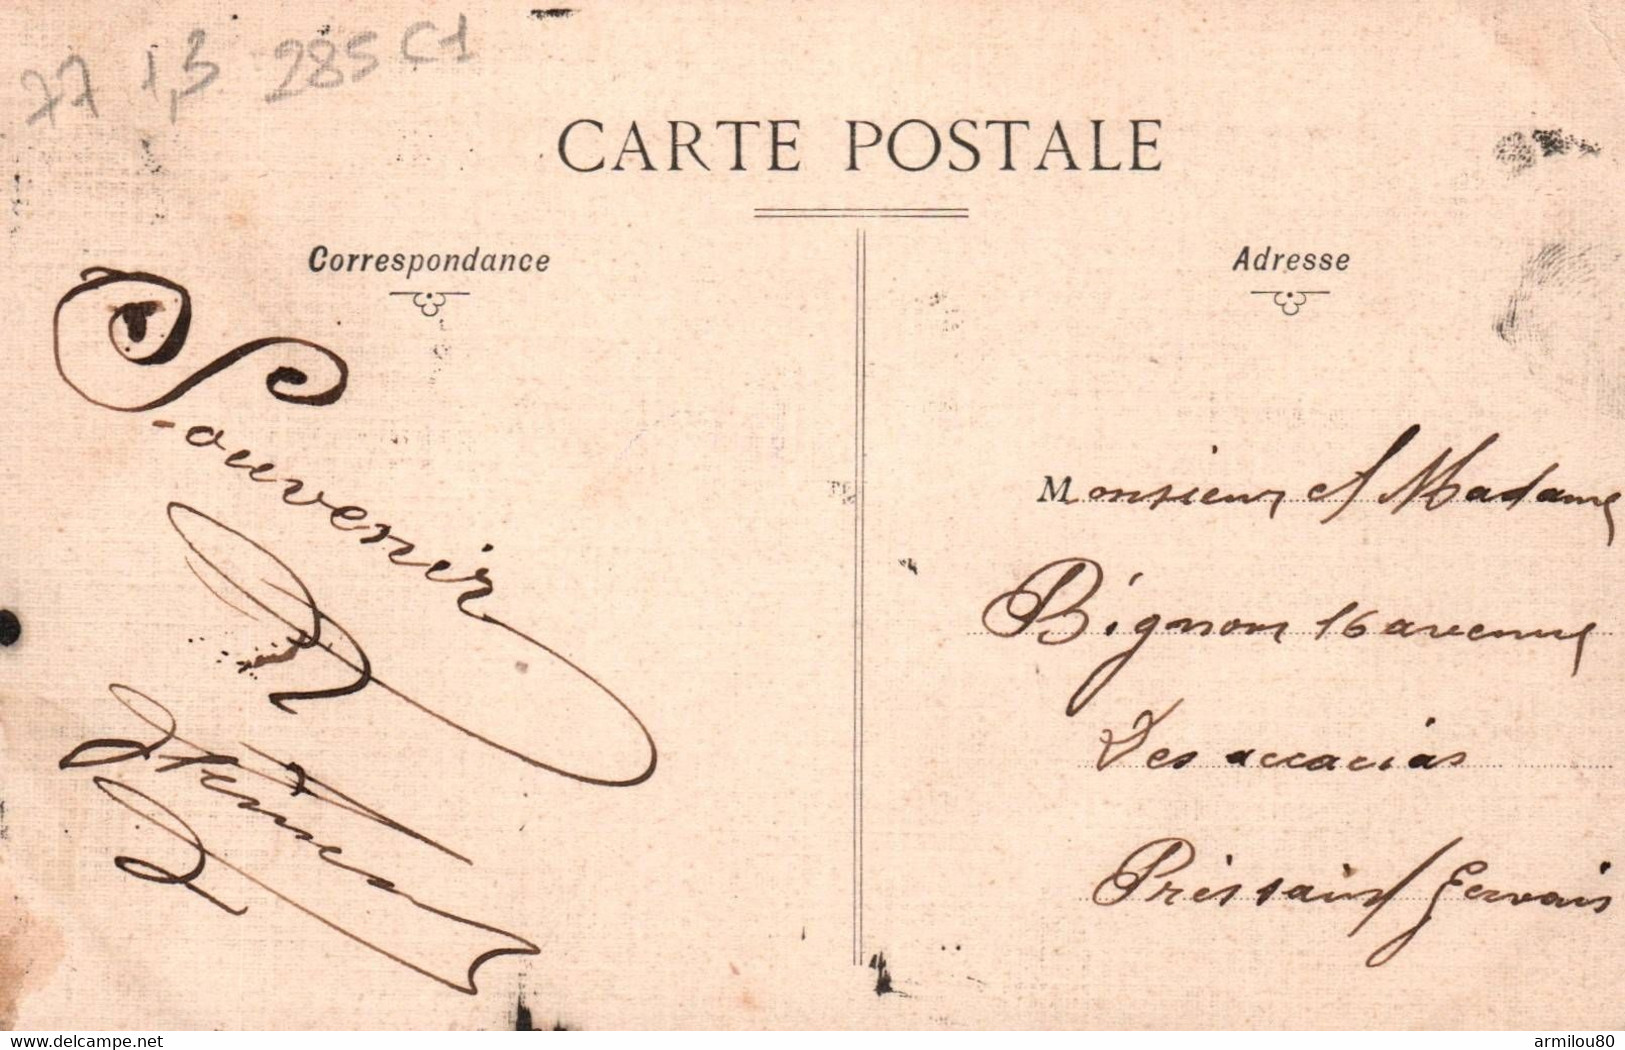 77 1,3 285 C1
CARTE POSTALE
Correspondance
Adresse
Souvenir
Monsieur et Madame
Bignon 16 avenue
Des accacias
Prés saint Gervais
www.delcampe.net
armilou80